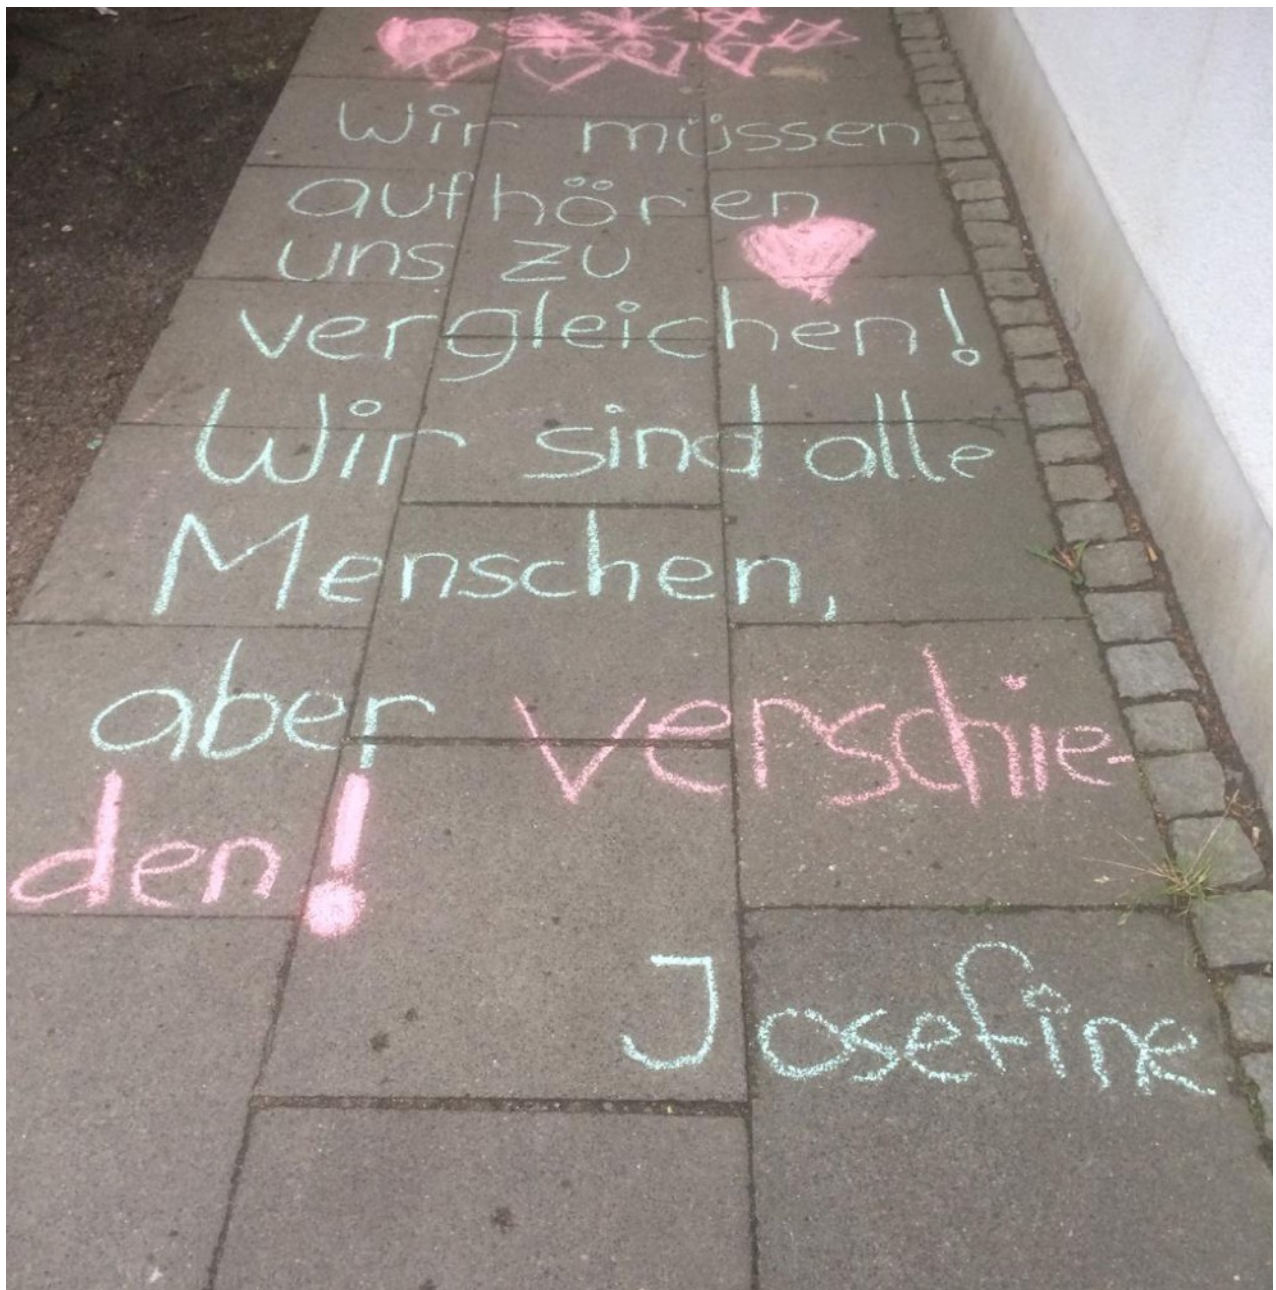 Wir müssen
aufhören
uns zu
vergleichen!
Wir sind alle
Menschen,
aber verschie-
den!
Josefine